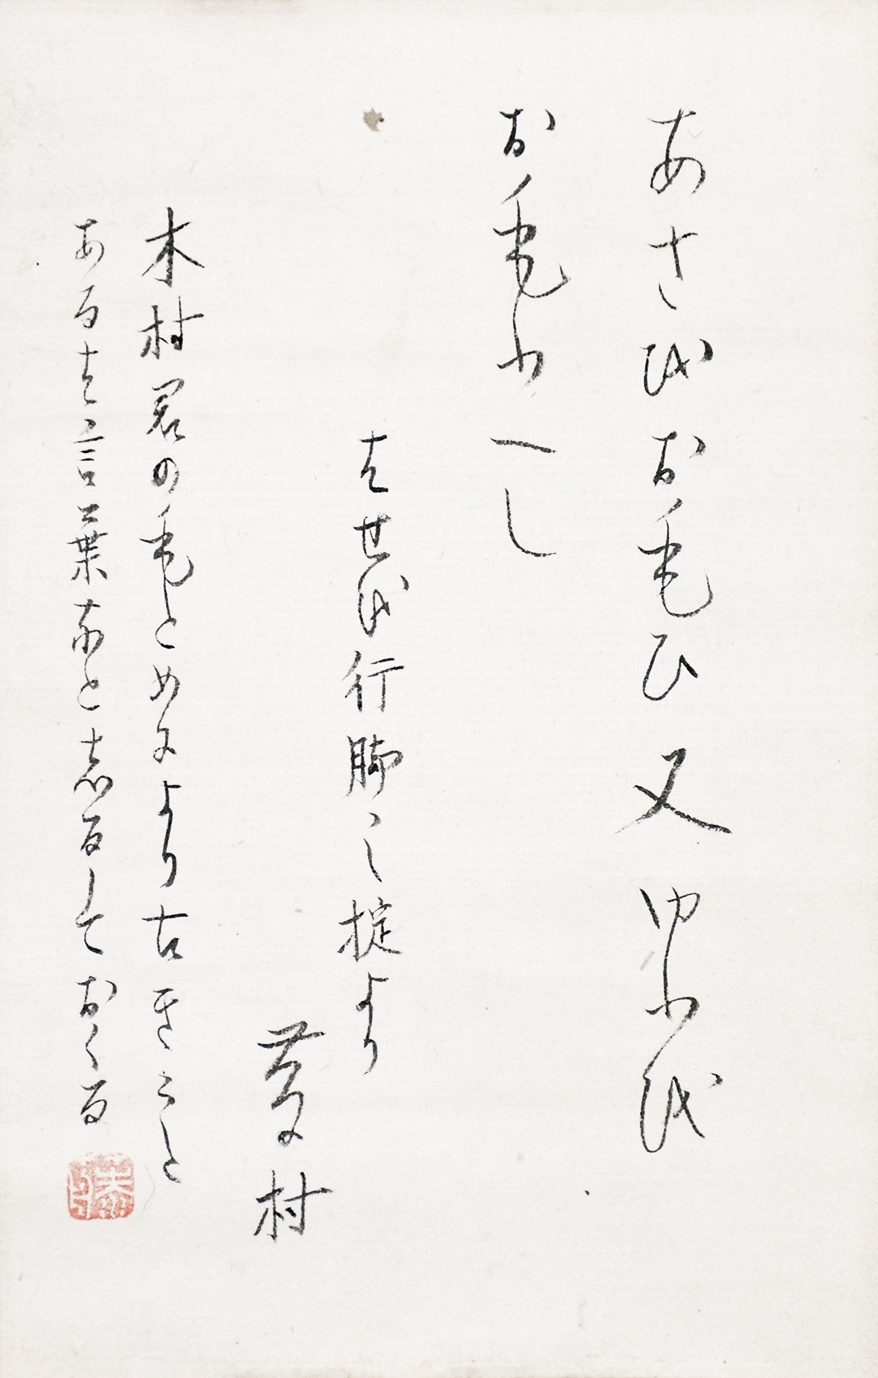 あさをおもひ又ゆふを
おもふへし
はせを行脚之掟より
藤村
木村君のもとめにより古きこと
あるは言葉なとしるしておくる